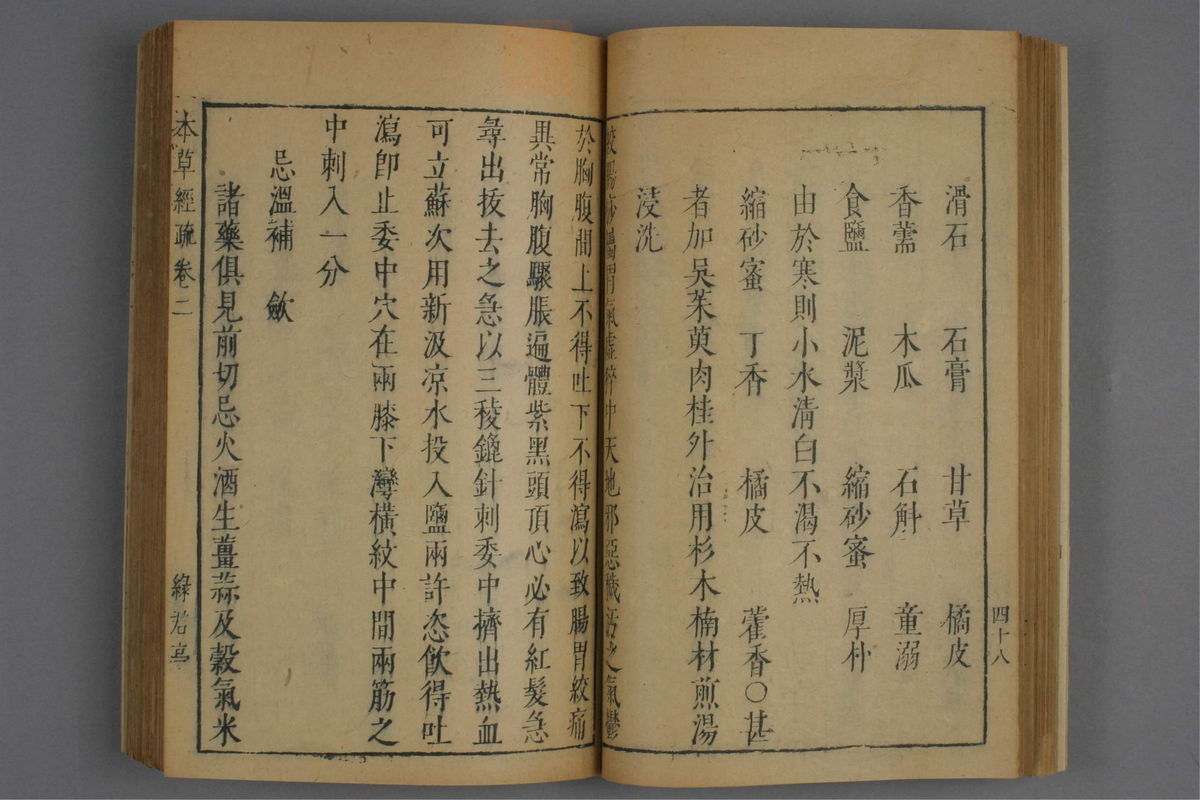 四十八
滑石 石膏 甘草 橘皮
香薷 木瓜 石斛 童溺
食鹽 泥漿 縮砂蜜 厚朴
由於寒則小水清白不渴不熱
縮砂蜜 丁香 橘皮 藿香○甚
者加吳茱萸肉桂外治用杉木楠材煎湯
浸洗
絞腸痧屬胃氣虛猝中天地邪惡穢汚之氣鬱
於胸腹間上不得吐下不得瀉以致腸胃絞痛
異常胸腹驟脹遍體紫黑頭頂心必有紅髮急
尋出拔去之急以三稜鑱針刺委中擠出熱血
可立蘇次用新汲凉水投入鹽兩許恣飲得吐
瀉卽止委中穴在兩膝下灣橫紋中間兩筋之
中刺入一分
忌溫補 斂
諸藥俱見前切忌火酒生薑蒜及穀氣米
本草經疏卷二
綠君亭